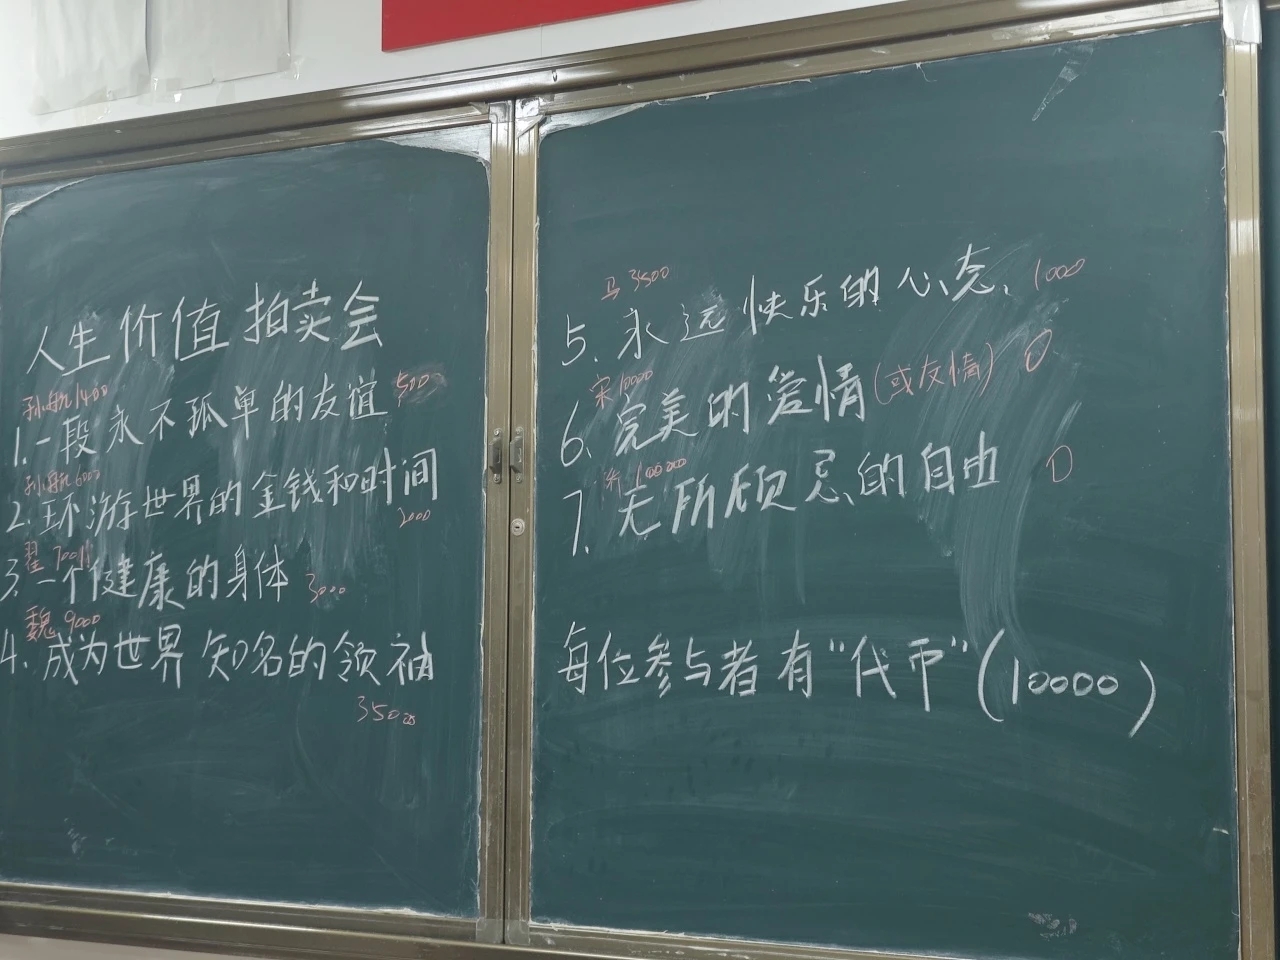 人生价值拍卖会
孙航 1400
1. 一段永不孤单的友谊 500
孙航 6000
2. 环游世界的金钱和时间
2000
翟
3. 一个健康的身体 3000
魏 9000
4. 成为世界知名的领袖
3500
马 3500
5. 永远快乐的心态. 1000
宋 10000
6. 完美的爱情(或友情) 0
7. 无所顾忌的自由 0
每位参与者有“代币”(10000)